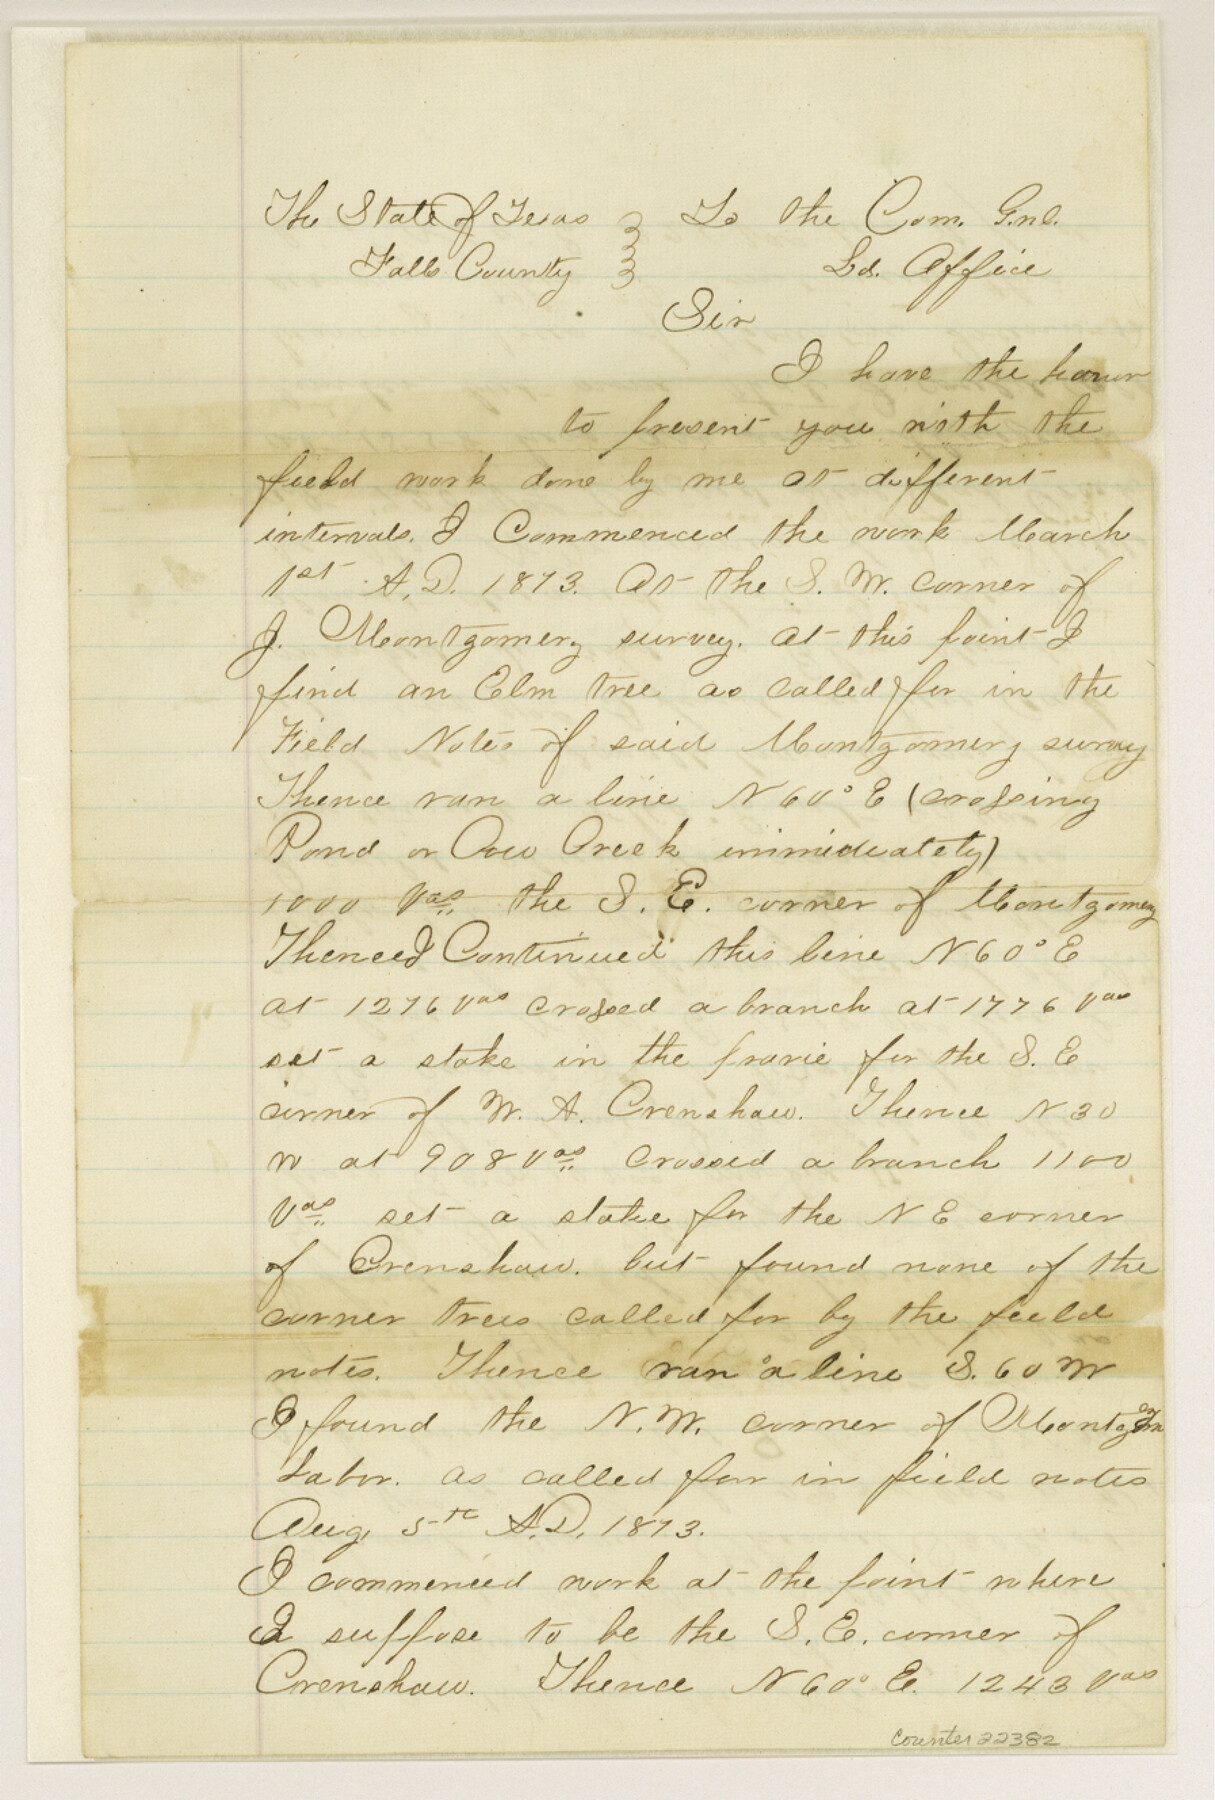 The State of Texas } To the Com. Gnl.
Falls County } Ld. Office
Sir
I have the honor
to present you with the
field work done by me at different
intervals. I Commenced the work March
1st A.D. 1873. At the S. W. corner of
J. Montgomery survey. at this point I
find an Elm tree as called for in the
Field Notes of said Montgomery survey
Thence ran a line N 60° E (crossing
Pond or Cow Creek immidiately)
1000 Vas the S. E. corner of Montgomery
Thence I Continued this line N 60° E
at 1276 Vas crossed a branch at 1776 Vas
set a stake in the prarie for the S. E
corner of W. A. Crenshaw. Thence N 30
W at 908 Vas Crossed a branch 1100
Vas set a stake for the N E corner
of Crenshaw. but found none of the
corner trees called for by the field
notes. Thence ran a line S. 60 W
I found the N. W. corner of Montgom
Labor. as called for in field notes
Aug. 5th A.D. 1873.
I commenced work at the point where
I suppose to be the S. E. corner of
Crenshaw. Thence N 60° E. 1243 Vas
counter 22382